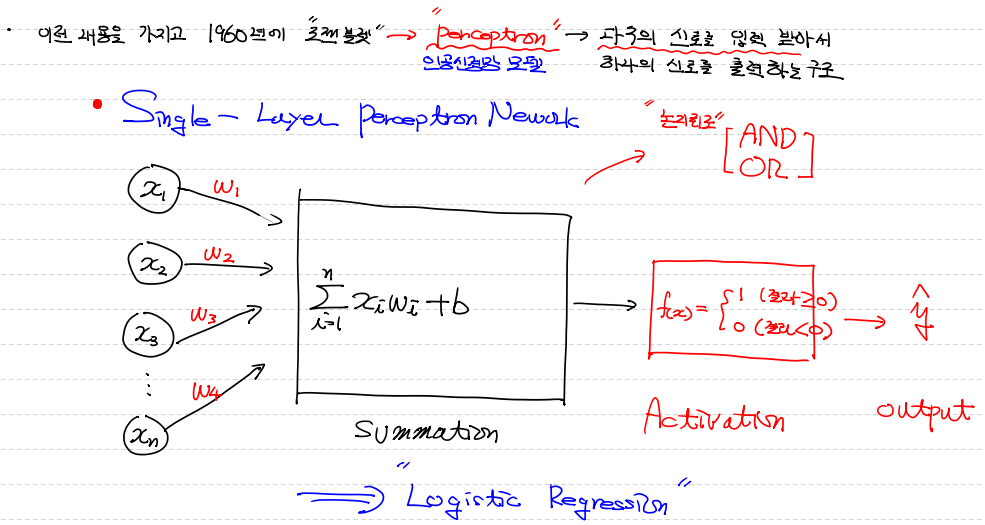 · 이런 내용을 가지고 1960년에 "로젠블렛" → "perceptron" → 다수의 신호를 입력 받아서
인공신경망 모델
하나의 신호를 출력하는 구조
• Single - Layer Perceptron Nework
"논리회로" [AND
OR]
x₁ w₁
x₂ w₂
x₃ w₃
⋮ w₄
xₙ
n
∑ xᵢwᵢ + b
i=1
f(x) = { 1 (결과≥0)
0 (결과<0)
ŷ
Summation
Activation
output
⟹ "Logistic Regression"